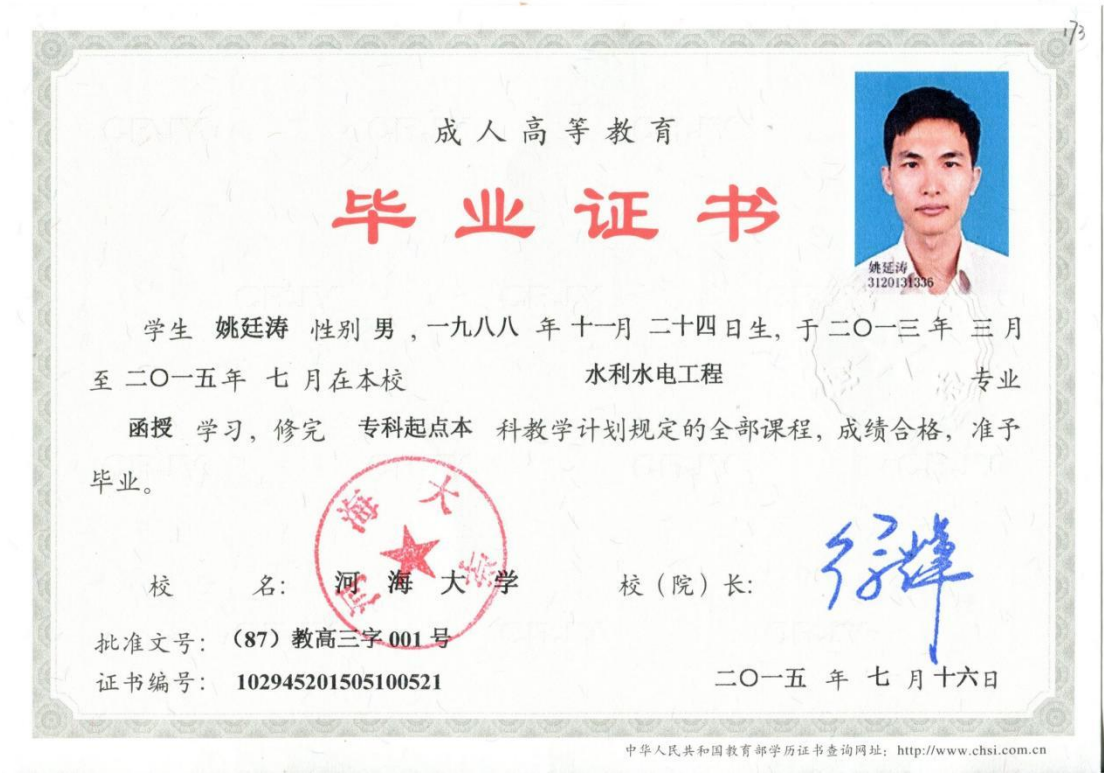 173
成人高等教育
毕业证书
姚廷涛
3120131336
学生 姚廷涛 性别 男 ，一九八八 年 十一月 二十四日生，于二〇一三年 三月
至 二〇一五年 七 月在本校 水利水电工程 专业
函授 学习，修完 专科起点本 科教学计划规定的全部课程，成绩合格，准予
毕业。
河海大学
校 名： 河 海 大 学 校（院）长：
批准文号：（87）教高三字 001 号
证书编号： 102945201505100521 二〇一五 年 七 月十六日
中华人民共和国教育部学历证书查询网址：http://www.chsi.com.cn